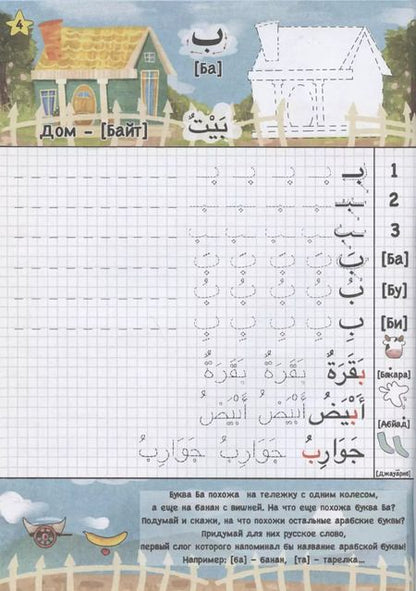 4
ب
[Ба]
Дом - [Байт]
بَيْتٌ
بـ بـ بـ بـ بـ 1
ـبـ ـبـ ـبـ ـبـ ـبـ 2
ـب ـب ـب ـب ـب 3
بَ بَ بَ بَ بَ [Ба]
بُ بُ بُ بُ بُ [Бу]
بِ بِ بِ بِ بِ [Би]
بَقَرَةٌ بَقَرَةٌ بَقَرَةٌ
[Бакара]
أَبْيَضُ أَبْيَضُ أَبْيَضُ
[Абйад]
جَوَارِبُ جَوَارِبُ جَوَارِبُ
[Джауариб]
Буква Ба похожа на тележку с одним колесом,
а еще на банан с вишней. На что еще похожа буква Ба?
Подумай и скажи, на что похожи остальные арабские буквы?
Придумай для них русское слово,
первый слог которого напоминал бы название арабской буквы!
Например: [ба] - банан, [та] - тарелка...